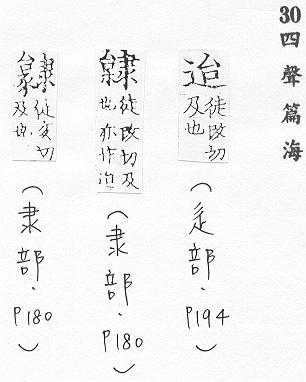 30四聲篇海
迨
徒改切
及也
(辵部.P194)
徒改切及
也亦作迨
(隶部.P180)
切
及也
(隶部.P180)